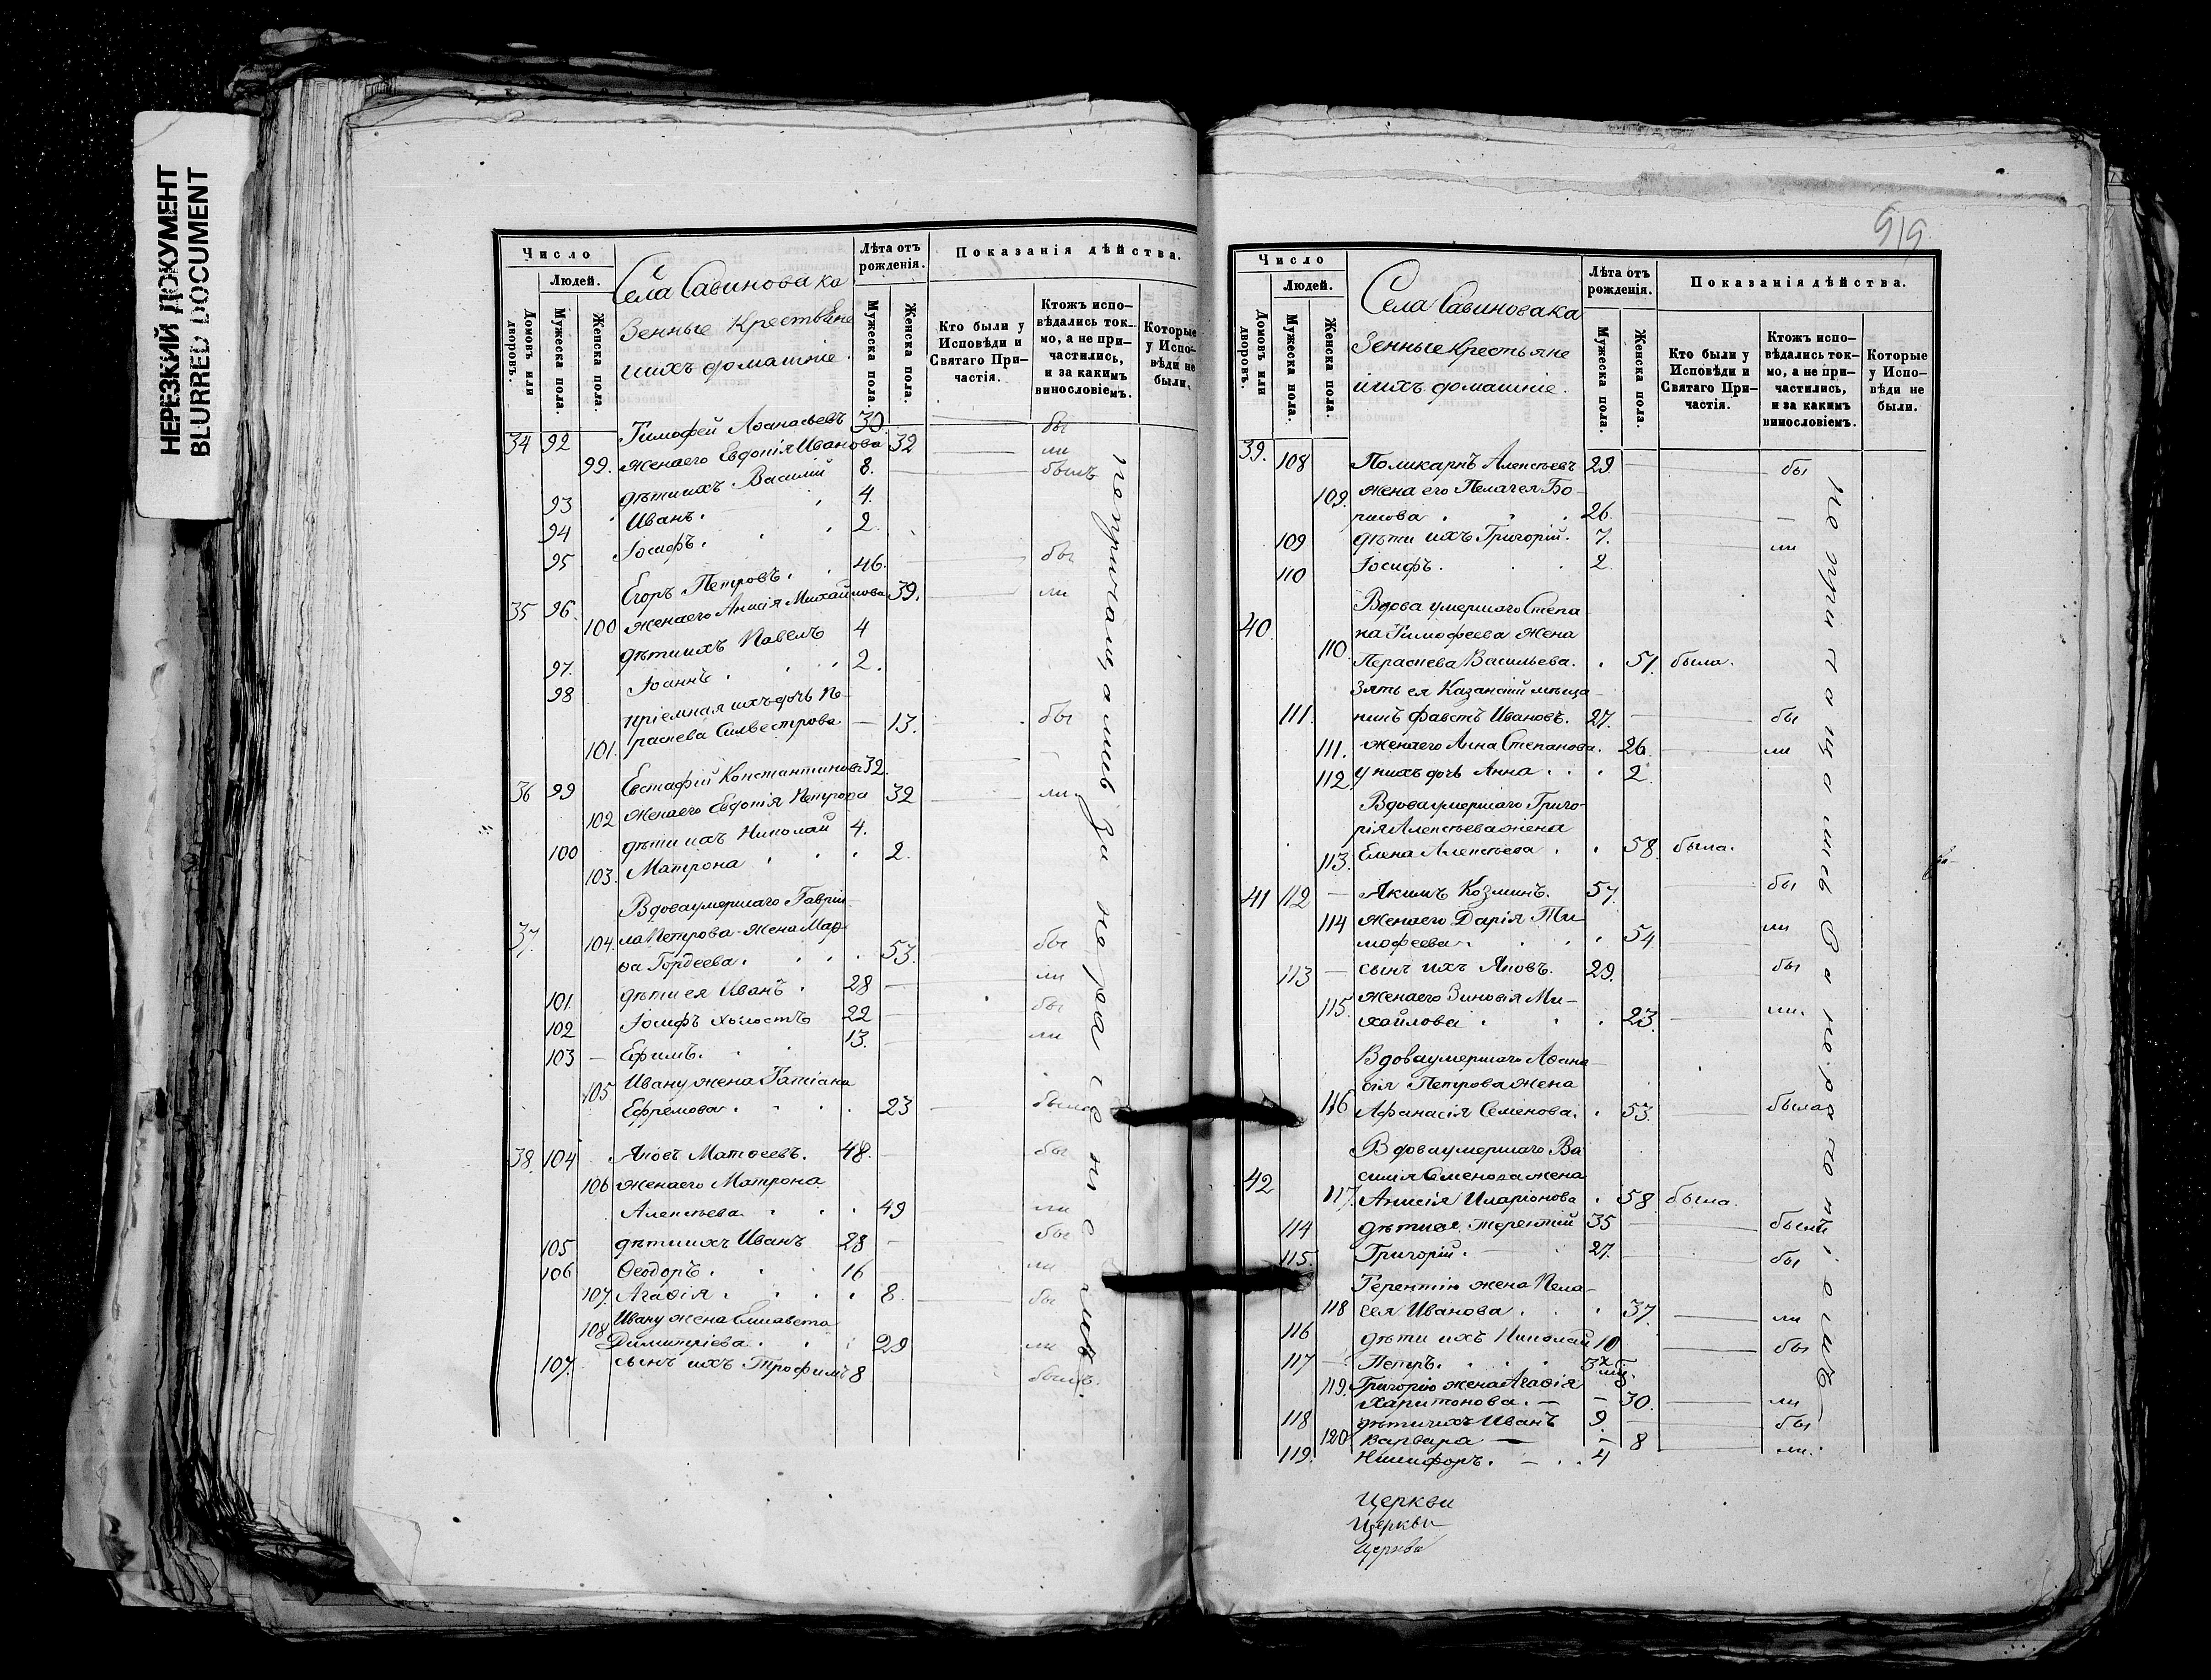 НЕРЕЗКИЙ ДОКУМЕНТ
BLURRED DOCUMENT
Число
Людей.
Домовъ или дворовъ.
Мужеска пола.
Женска пола.
Села Савинова ка
зенные Крестьяне
ихъ домашніе.
Лѣта отъ рожденія.
Мужеска пола.
Женска пола.
Показанія дѣйства.
Кто были у Исповѣди и Святаго Причастія.
Ктожъ исповѣдались токмо, а не причастились, и за какимъ винословіемъ.
Которые у Исповѣди не были.
34 92 Тимофей Аѳанасьевъ 30 бы
99. жена его Евдокія Иванова 32 ли
93 дѣти ихъ Василій 8. былъ
94 Иванъ. 4.
95 Іосифъ. 2.
35 96. Егоръ Петровъ. 46. бы
100 жена его Анисія Михайлова 39. ли
97. дѣти ихъ Павелъ 4
98 Іоаннъ 2.
пріемная ихъ дочь П
101. раскева Силвестрова 13. бы
36 99 Евстафій Константиновъ 32.
102 жена его Евдокія Петрова 32 ли
100 дѣти ихъ Николай 4.
103. Матрона 2.
Вдова умершаго Гаврі
37. 104. ла Петрова жена Мар
ѳа Гордеева. 53. бы
101 дѣти ея Иванъ 28 ли
102 Іосифъ холостъ 22 бы
103 Ефимъ. 13. ли
105 Ивану жена Татіана
Ефремова. 23 была
38. 104 Яковъ Матѳеевъ. 48. бы
106 жена его Матрона
Алексѣева 49 ли
105 дѣти ихъ Иванъ 28 бы
106 Ѳеодоръ. 16 ли
107. Агафія 8. бы
108 Ивану жена Елисавета
Димитріева. 29 ли
107. сынъ ихъ Трофимъ 8 былъ.
919
Число
Людей.
Домовъ или дворовъ.
Мужеска пола.
Женска пола.
Села Савинова ка
зенные Крестьяне
и ихъ домашніе.
Лѣта отъ рожденія.
Мужеска пола.
Женска пола.
Показанія дѣйства.
Кто были у Исповѣди и Святаго Причастія.
Ктожъ исповѣдались токмо, а не причастились, и за какимъ винословіемъ.
Которые у Исповѣди не были.
39. 108 Поликарпъ Алексѣевъ 29 бы
109. жена его Пелагея Бо
рисова 26.
109 дѣти ихъ Григорій. 7. ли
110 Іосифъ. 2.
Вдова умершаго Степа
40. на Тимофеева жена
110. Параскева Васильева. 51. была.
Зять ея Казанскій мѣща
111. нинъ Фавстъ Ивановъ. 27. бы
111. жена его Анна Степанова. 26. ли
112 у нихъ дочь Анна 2.
Вдова умершаго Григо
рія Алексѣева жена
113. Елена Алексѣева 58. была.
41 112 Акимъ Козминъ. 57. бы
114 жена его Дарія Ти
мофеева. 54 ли
113 сынъ ихъ Яковъ. 29. бы
115. жена его Зиновія Ми
хайлова 23. ли.
Вдова умершаго Аѳана
сія Петрова жена
116 Афанасія Семенова. 53. была
Вдова умершаго Ва
42 силія Семенова жена
117. Анисія Иларіонова 58. была.
114 дѣти ея Терентій 35 былъ
115. Григорій. 27. бы
Терентію жена Пела
118 гея Иванова 37. ли
116 дѣти ихъ Николай 10 бы
117 Петръ. 3х мц.
119. Григорію жена Агафія
Харитонова. 30. ли
118 дѣти ихъ Иванъ 9. бы
120 Варвара 8 ли.
119. Никифоръ. 4
Церкви
Церкви
Церкви